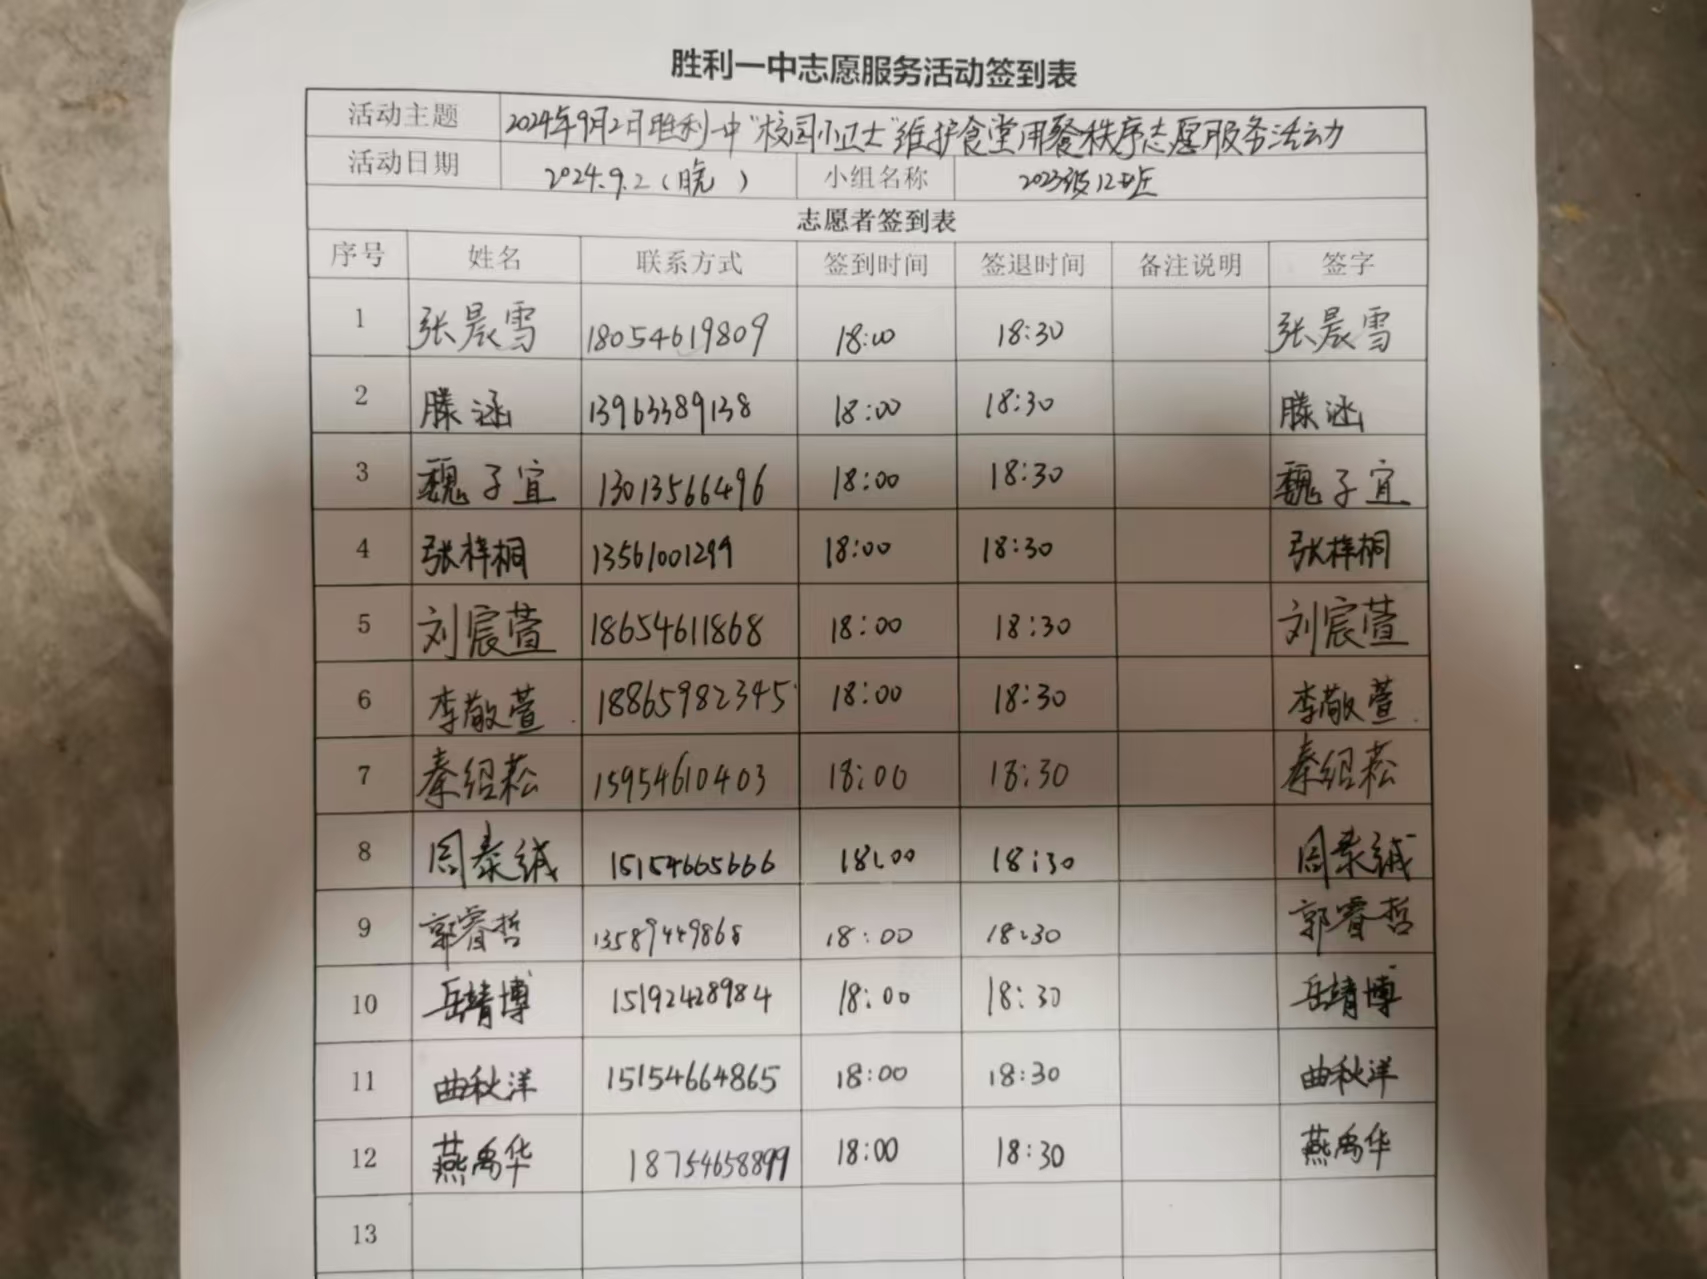 胜利一中志愿服务活动签到表
活动主题 2024年9月2日胜利一中"校园小卫士"维护食堂用餐秩序志愿服务活动
活动日期 2024.9.2(晚 ) 小组名称 2023级12班
志愿者签到表
序号 姓名 联系方式 签到时间 签退时间 备注说明 签字
1 张晨雪 18054619809 18:00 18:30 张晨雪
2 滕涵 13963389138 18:00 18:30 滕涵
3 魏子宜 13013566496 18:00 18:30 魏子宜
4 张梓桐 13561001299 18:00 18:30 张梓桐
5 刘宸萱 18654611868 18:00 18:30 刘宸萱
6 李敬萱 18865982345 18:00 18:30 李敬萱
7 秦绍菘 15954610403 18:00 18:30 秦绍菘
8 周泰诚 15154665666 18:00 18:30 周泰诚
9 郭睿哲 13589449868 18:00 18:30 郭睿哲
10 岳靖博 15192428984 18:00 18:30 岳靖博
11 曲秋洋 15154664865 18:00 18:30 曲秋洋
12 燕禹华 18754658899 18:00 18:30 燕禹华
13